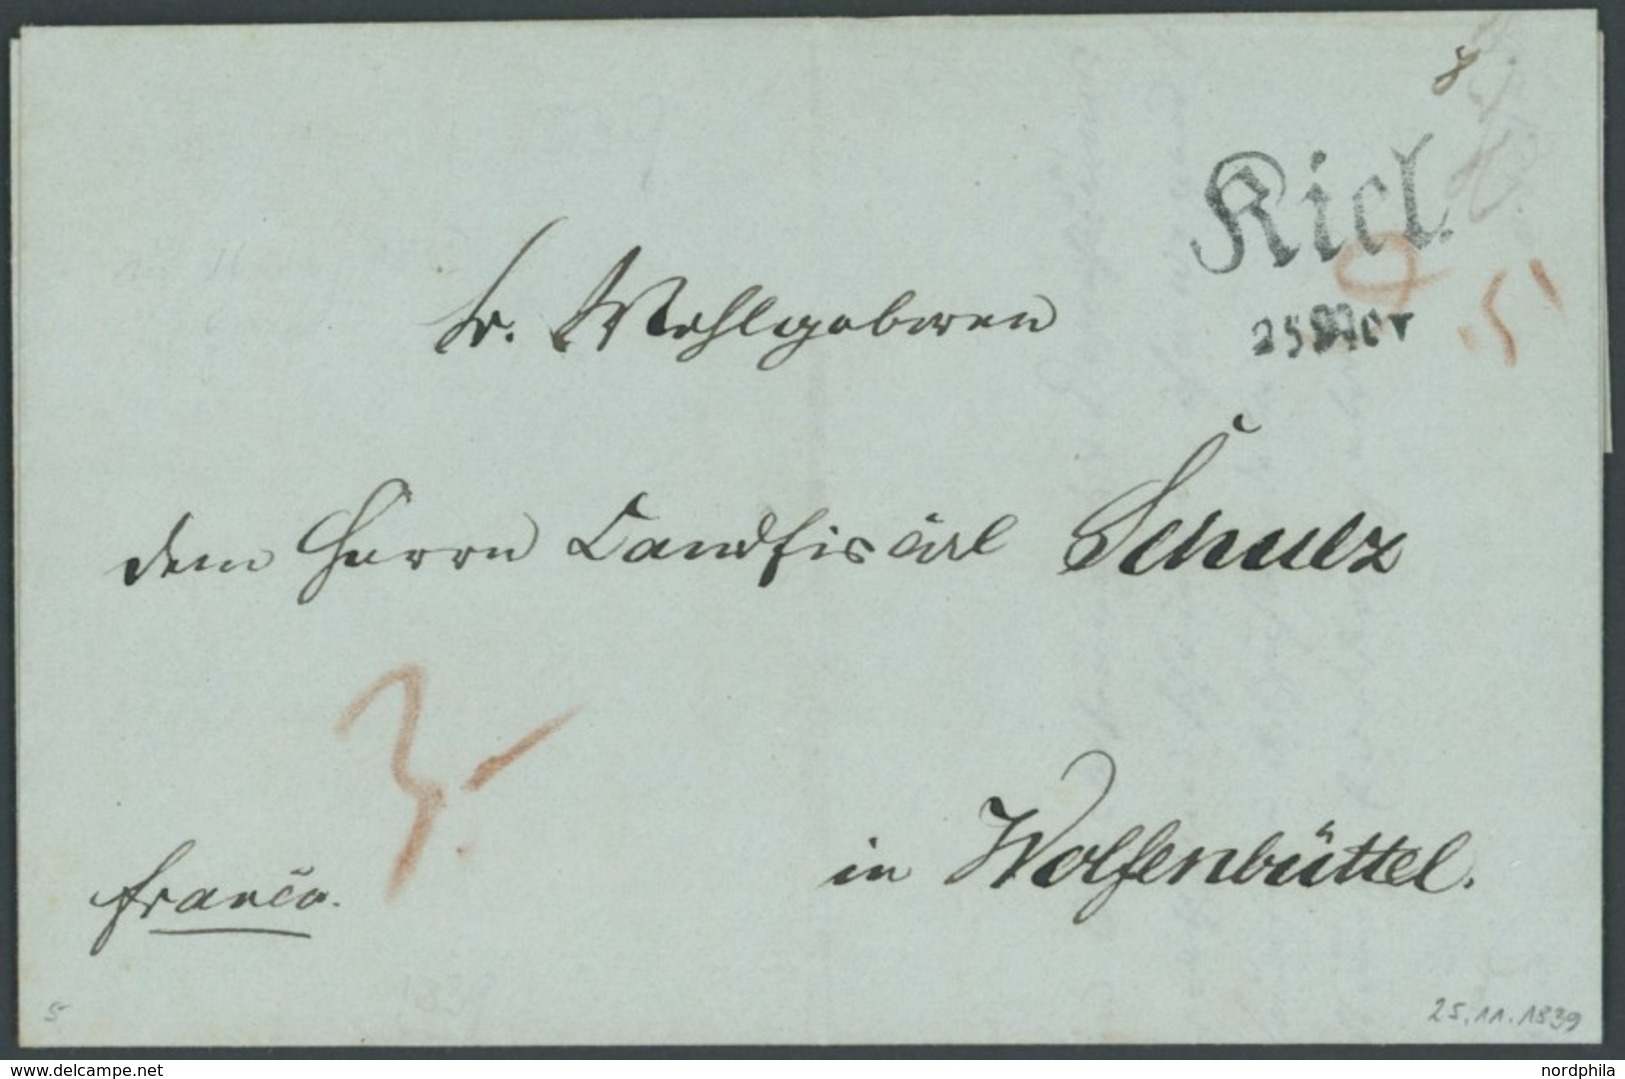 8
Kiel.
25 Nov
5
Sr. Wohlgeboren
dem Herrn Landfiscal Schulz
3.
in Wolfenbüttel.
franco.
5
25.11.1839
www.delcampe.net
nordphila